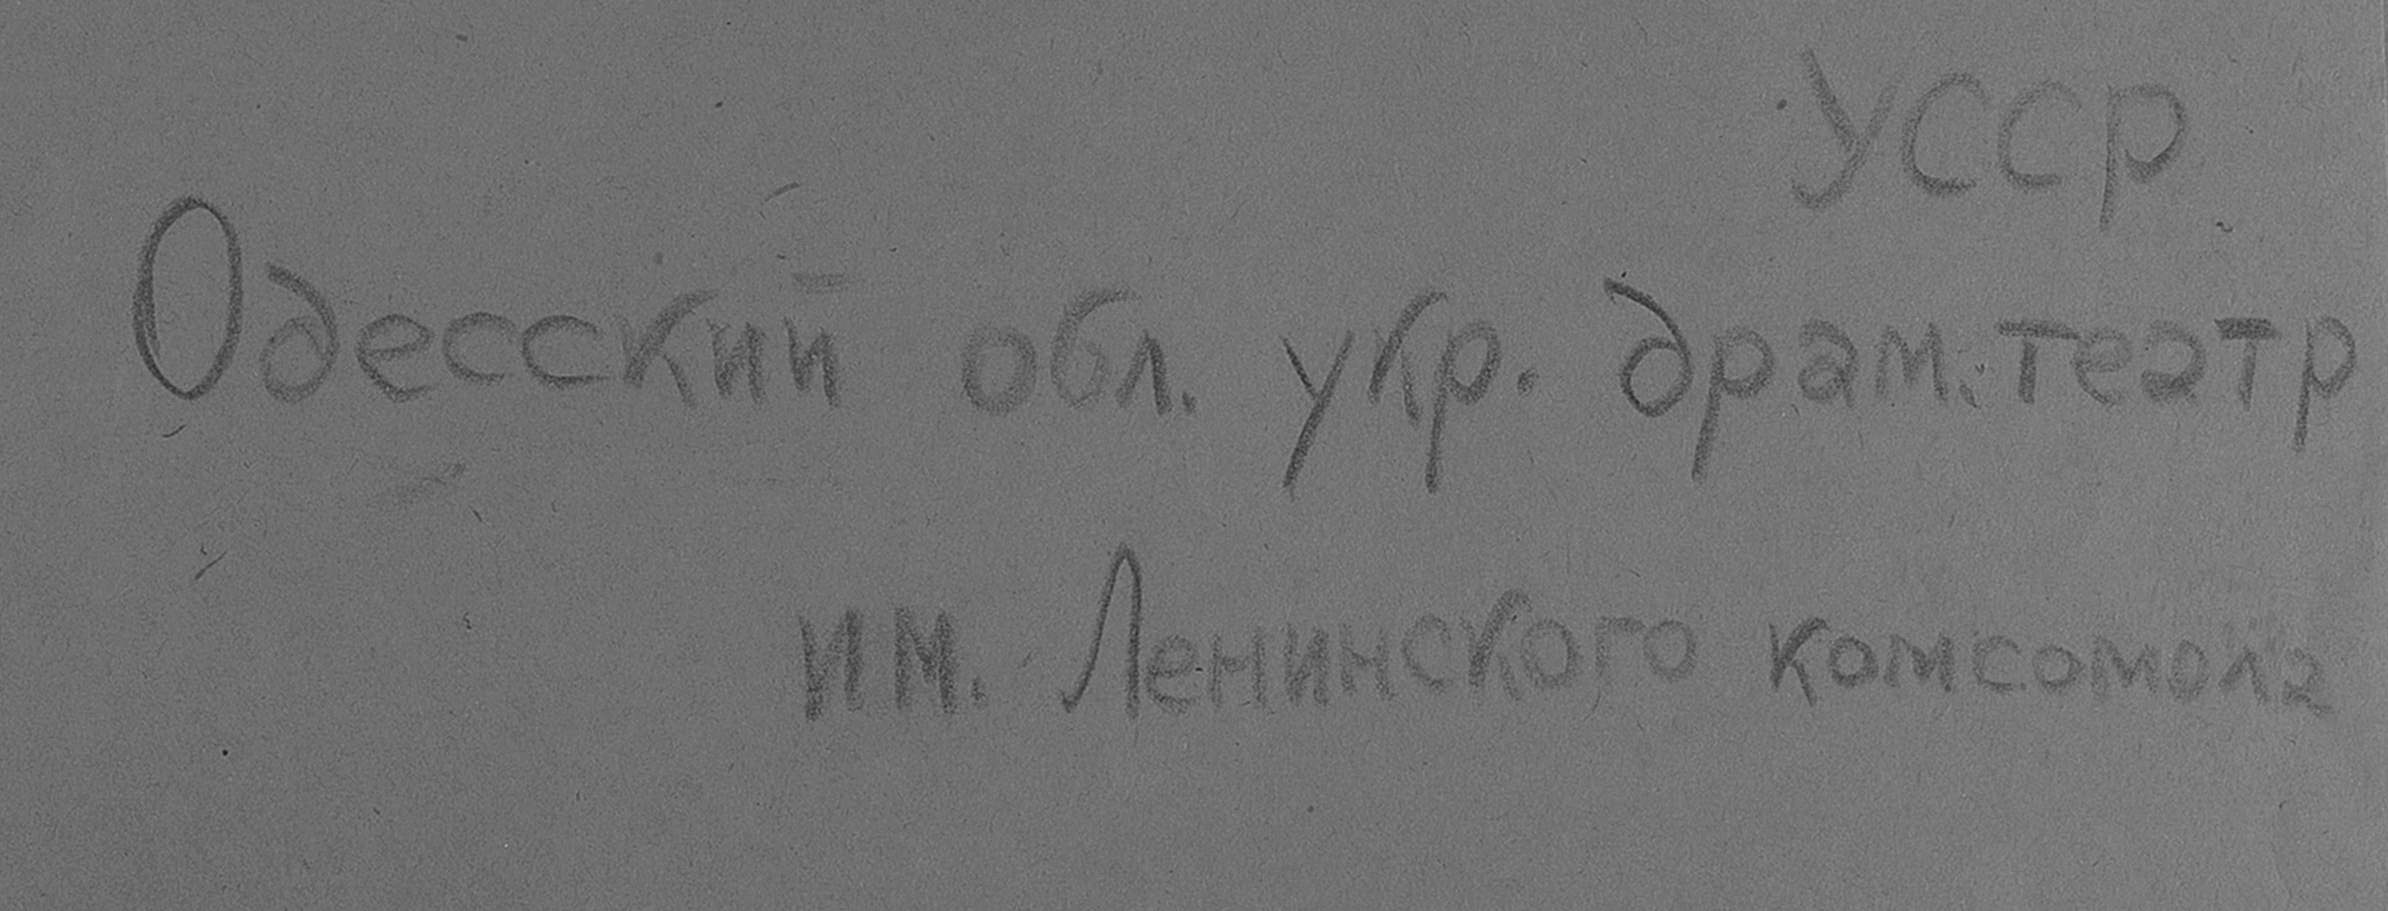 УССР
Одесский обл. укр. драм. театр
им. Ленинского комсомола